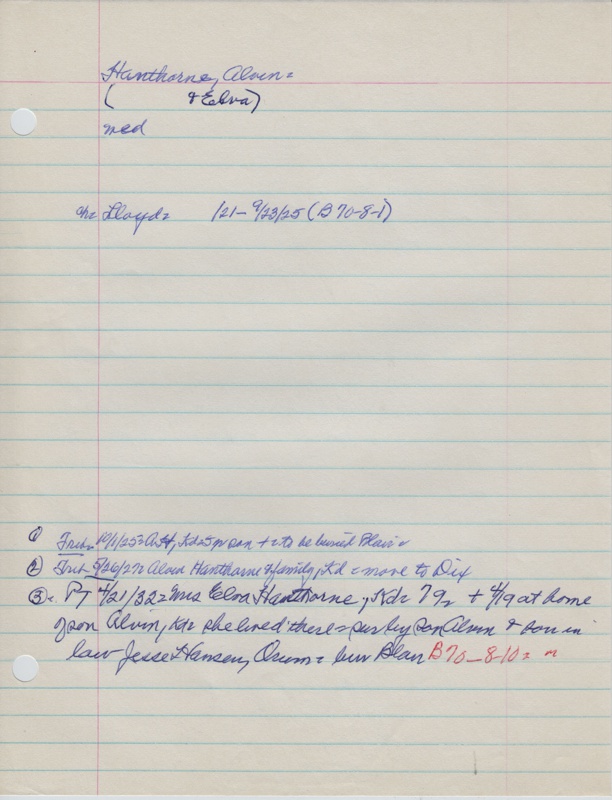 Hanthorne, Alvin =
( & Elva)
med
ch= Lloyd= /21 - 9/23/25 (B 70-8-1)
① Trib= 10/1/25= A H, Kd= 5 yr son + = to be buried Blair=
② Trib 5/26/27= Alvin Hanthorne & family, Kd = move to Dix
③= PT 4/21/32= Mrs Elva Hanthorne, Kd= 79, + 4/19 at home
of son Alvin, Kd= she lived there = sur by son Alvin & son in
law Jesse Hansen, Orum= bur Blair B70-8-10=